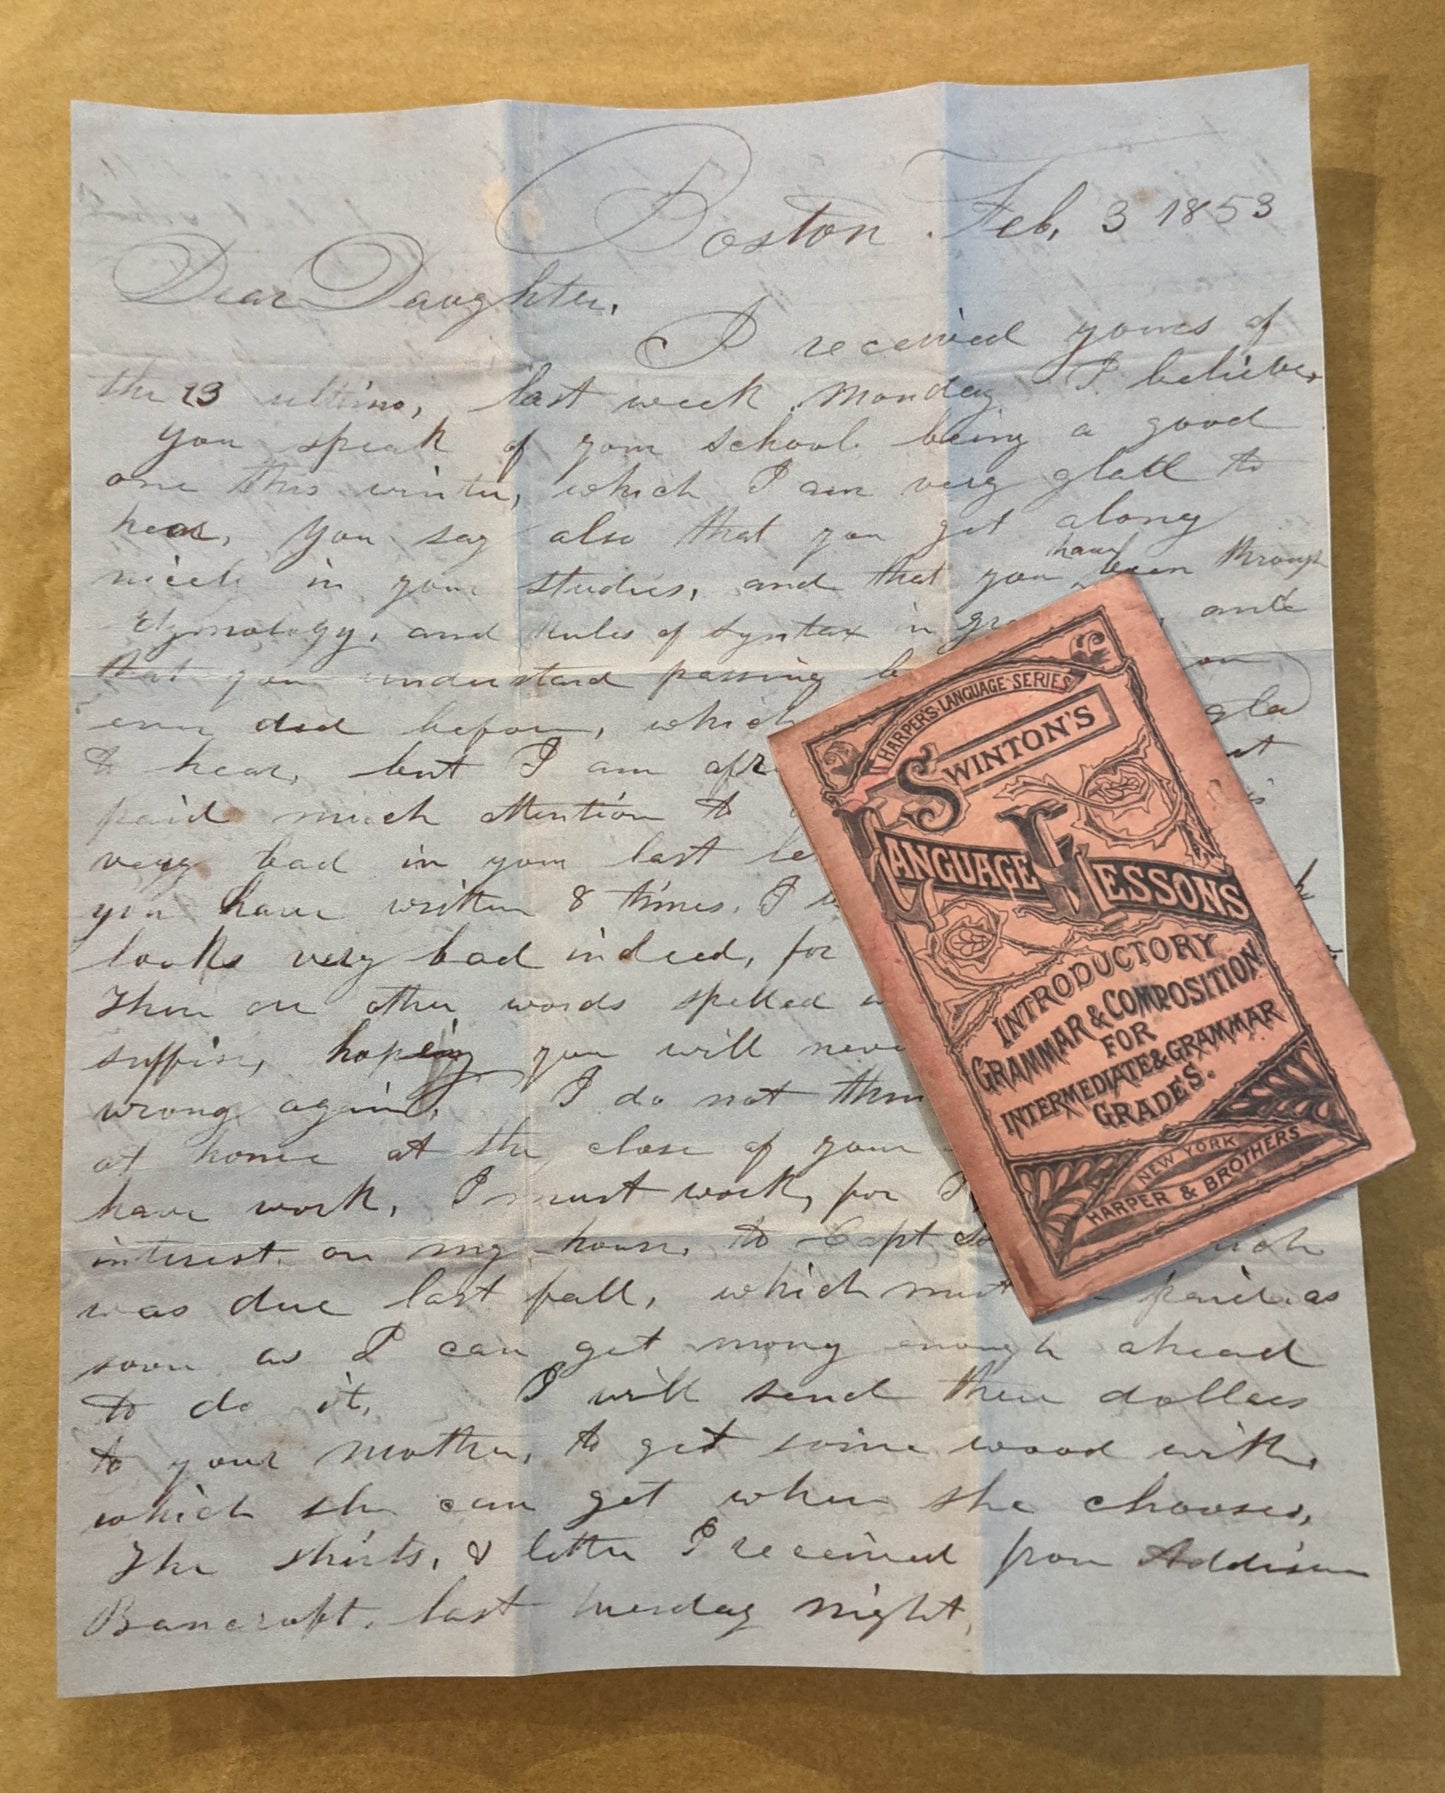 Boston Feb, 3 1853
Dear Daughter,
I received yours of
the 13 ultimo, last week Monday I believe,
You speak of your school being a good
one this winter, which I am very glad to
hear, You say also that you get along
nicely in your studies, and that you have been through
Etymology, and Rules of Syntax in and
that you understand passing
ever did before, which
& hear, but I am
paid much attention to
very bad in your last
you have written 8 times. I
looks very bad indeed, for
There are other words spelled
suffise, hopeing you will
wrong again, I do not
at home at the close of your
have work, I must work, for
interest on my house, to Capt
was due last fall, which must paid as
soon as I can get mony enough ahead
to do it, I will send three dollars
to your mother, to get some wood with,
which she can get when she chooses,
The shirts, & letter I received from Addison
Bancroft, last tuesday night,
HARPER'S LANGUAGE SERIES
SWINTON'S
LANGUAGE LESSONS
INTRODUCTORY
GRAMMAR & COMPOSITION
FOR
INTERMEDIATE & GRAMMAR
GRADES.
NEW YORK
HARPER & BROTHERS